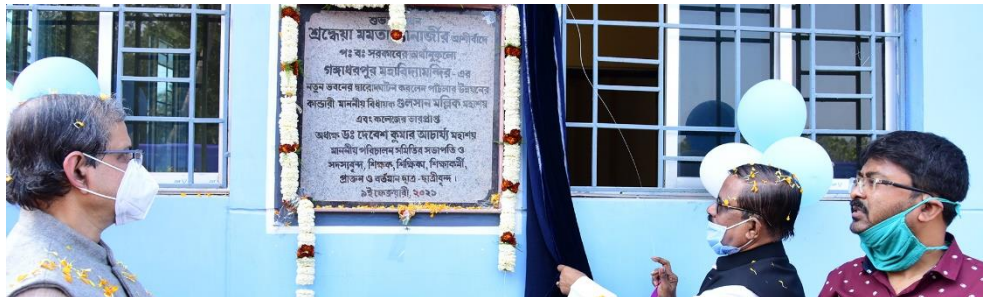 শুভ
শ্রদ্ধেয়া মমতা ব্যানার্জীর আশীর্বাদে
পঃ বঃ সরকারের আর্থানুকূল্যে
গঙ্গাধরপুর মহাবিদ্যামন্দির - এর
নতুন ভবনের দ্বারোদঘাটন করলেন পাঁচলার উন্নয়নের
কান্ডারী মাননীয় বিধায়ক গুলসান মল্লিক মহাশয়
এবং কলেজের ভারপ্রাপ্ত
অধ্যক্ষ ডঃ দেবেশ কুমার আচার্য্য মহাশয়
মাননীয় পরিচালন সমিতির সভাপতি ও
সদস্যবৃন্দ, শিক্ষক, শিক্ষিকা, শিক্ষাকর্মী,
প্রাক্তন ও বর্তমান ছাত্র - ছাত্রীবৃন্দ ।
৯ই ফেব্রুয়ারী, ২০২১